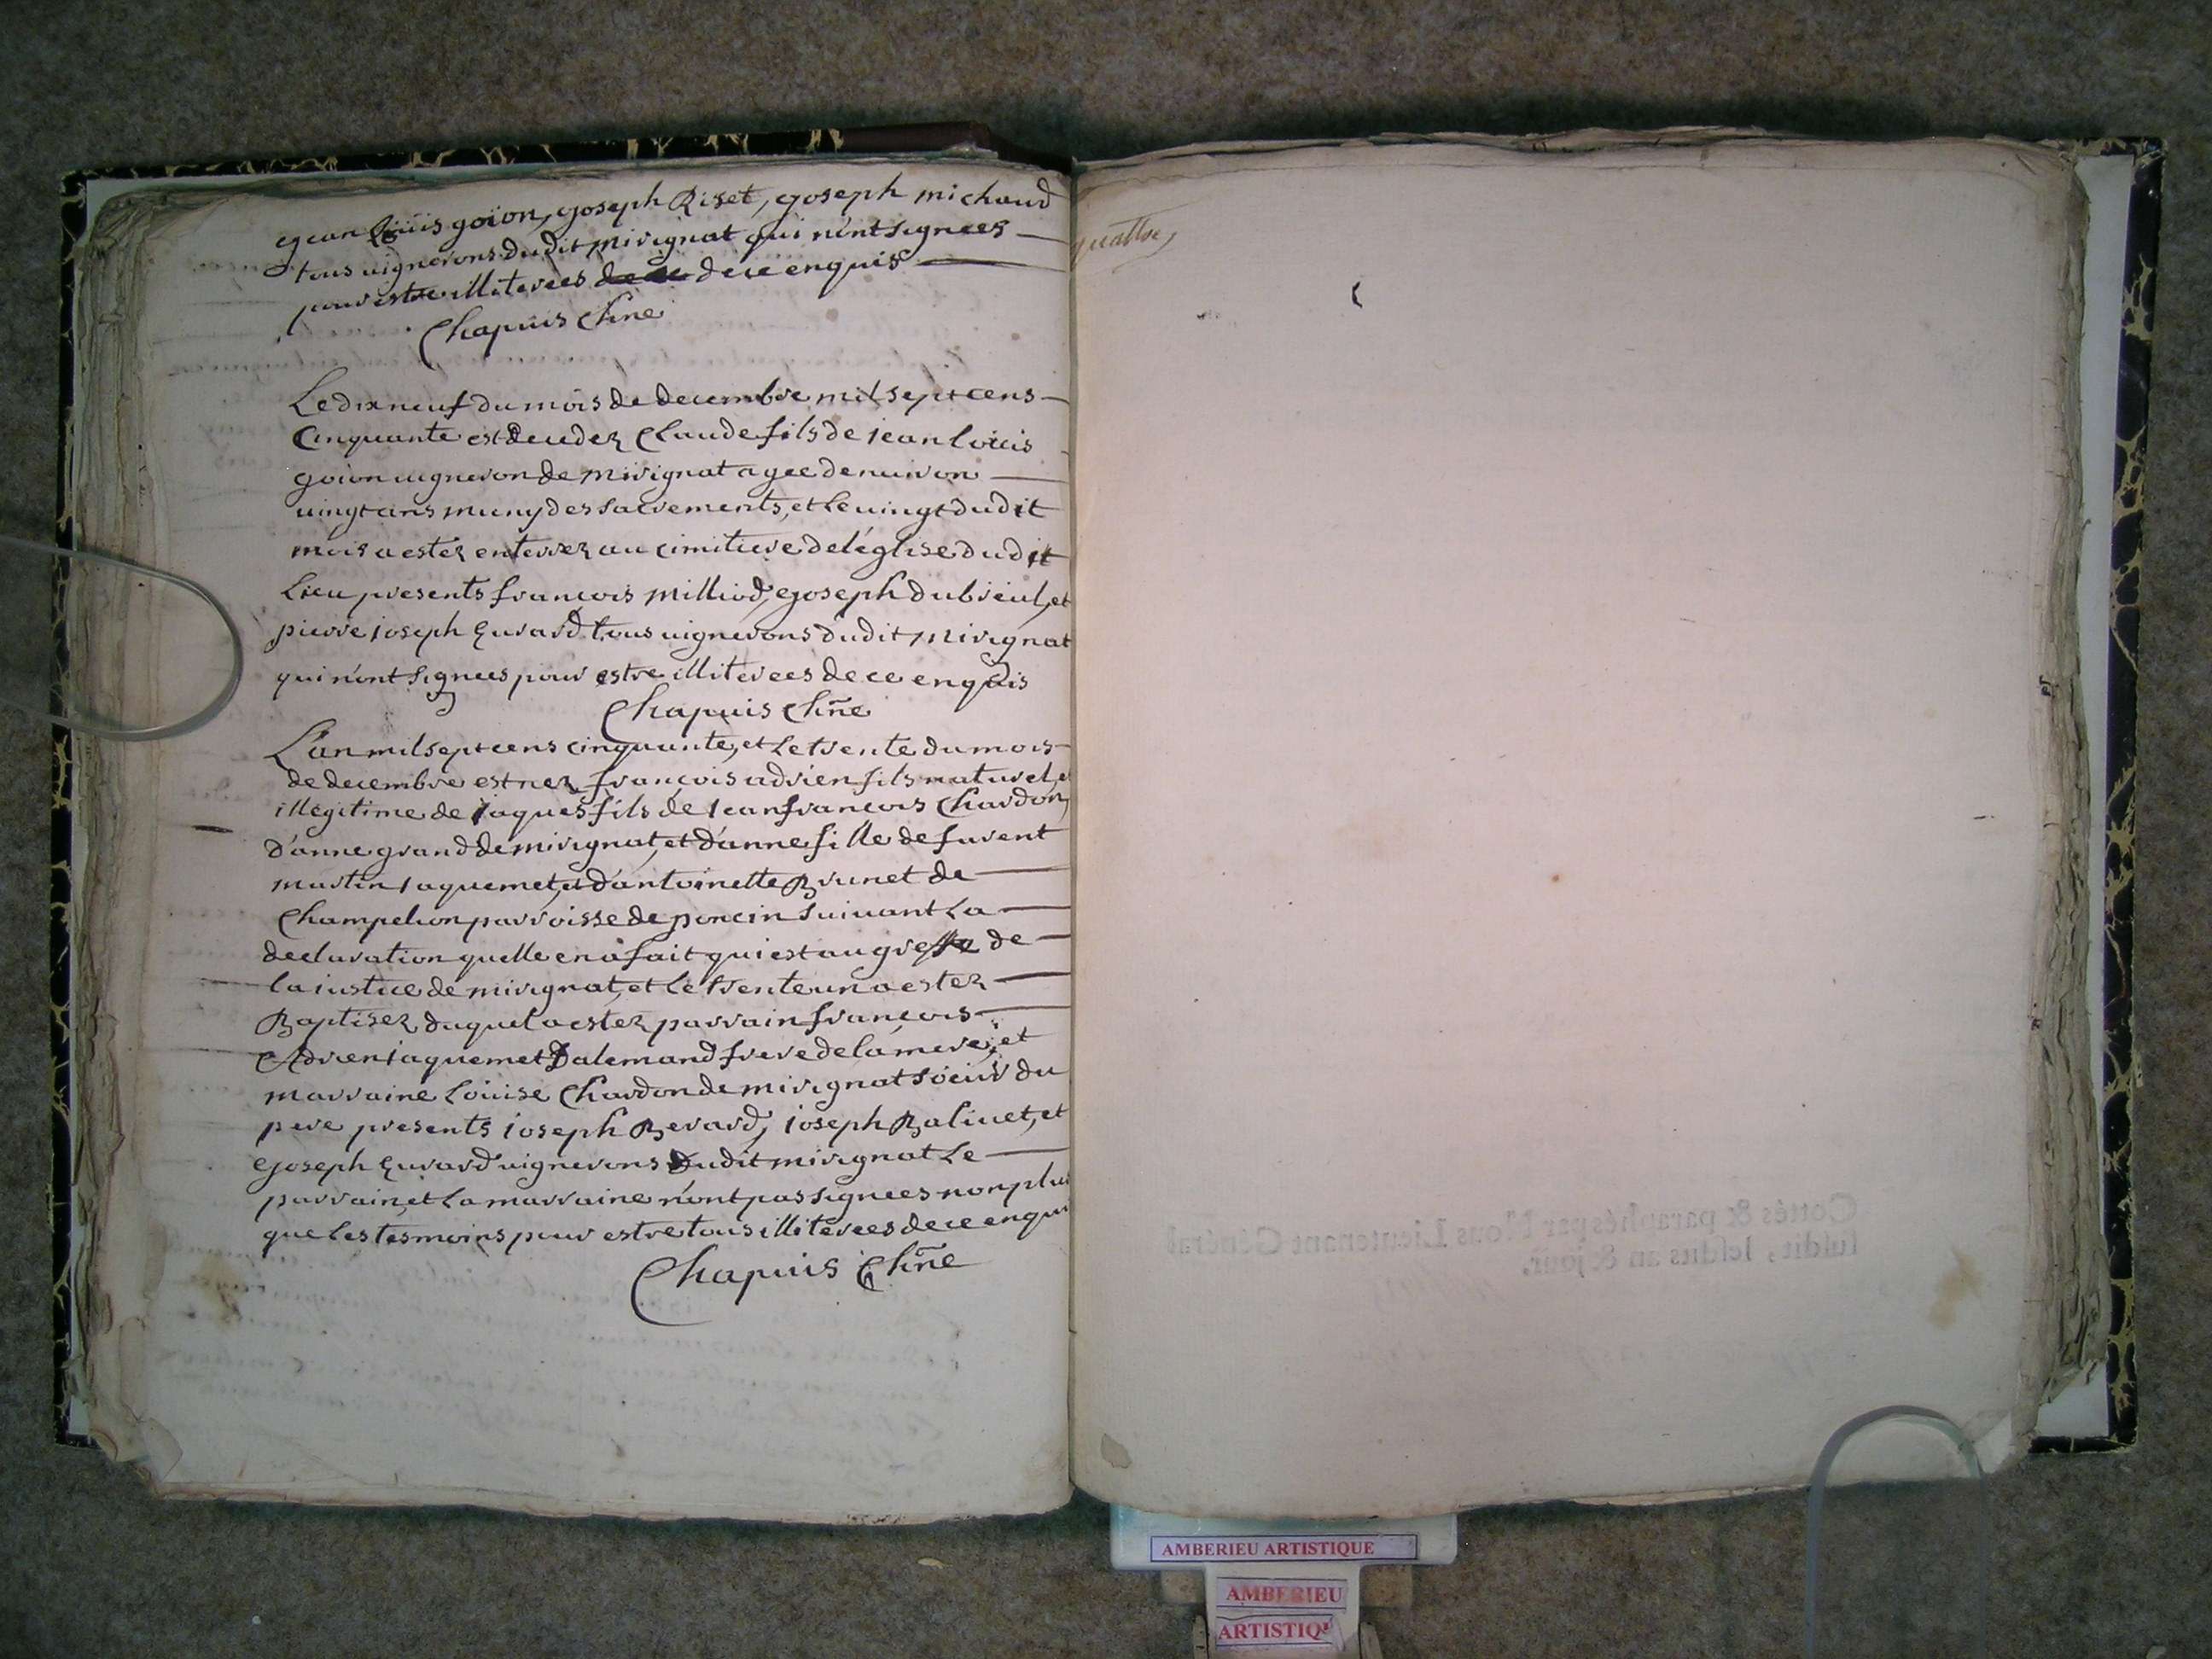 jean loüis goïon, joseph Riset, joseph michaud
tous vignerons dudit mirignat qui n'ont signees
pour estre illiterees de ce enquis
Chapuis Chne
Le dix neuf du mois de decembre mil sept cens
Cinquante est decedez Claude fils de jean loüis
goïon vigneron de mirignat agee denviron
vingt ans muny des sacrements, et le vingt dudit
mois a estez enterrez au cimitiere de l'église dudit
Lieu presents françois milliod, joseph dubreul, et
pierre joseph Evrard tous vignerons dudit mirignat
qui n'ont signees pour estre illiterees de ce enquis
Chapuis Chñe
L'an mil sept cens cinquante, et le trente du mois
de decembre est nez françois adrien fils naturel, et
illégitime de jaques fils de jean françois Chardon,
d'anne grand de mirignat, et d'anne fille de furent
martin jaquemet, et d'antoinette Brunet de
Champelion parroisse de poncin suivant La
declaration quelle en a fait qui est au greffe de
la justice de mirignat, et le trente un a estez
Baptisez duquel a estez parrain françois
Adrien jaquemet D'alemand frere de la mere, et
marraine Loüise Chardon de mirignat soeur du
pere presents joseph Berard, joseph Balivet, et
joseph Evrard vignerons dudit mirignat Le
parrain, et la marraine n'ont pas signees non plus
que les tesmoins pour estre tous illiterees de ce enqui
Chapuis Chñe
quattre
Cottés & paraphés par Nous Lieutenant Général
susdit, lesdits an & jour.
AMBERIEU ARTISTIQUE
AMBERIEU
ARTISTIQU